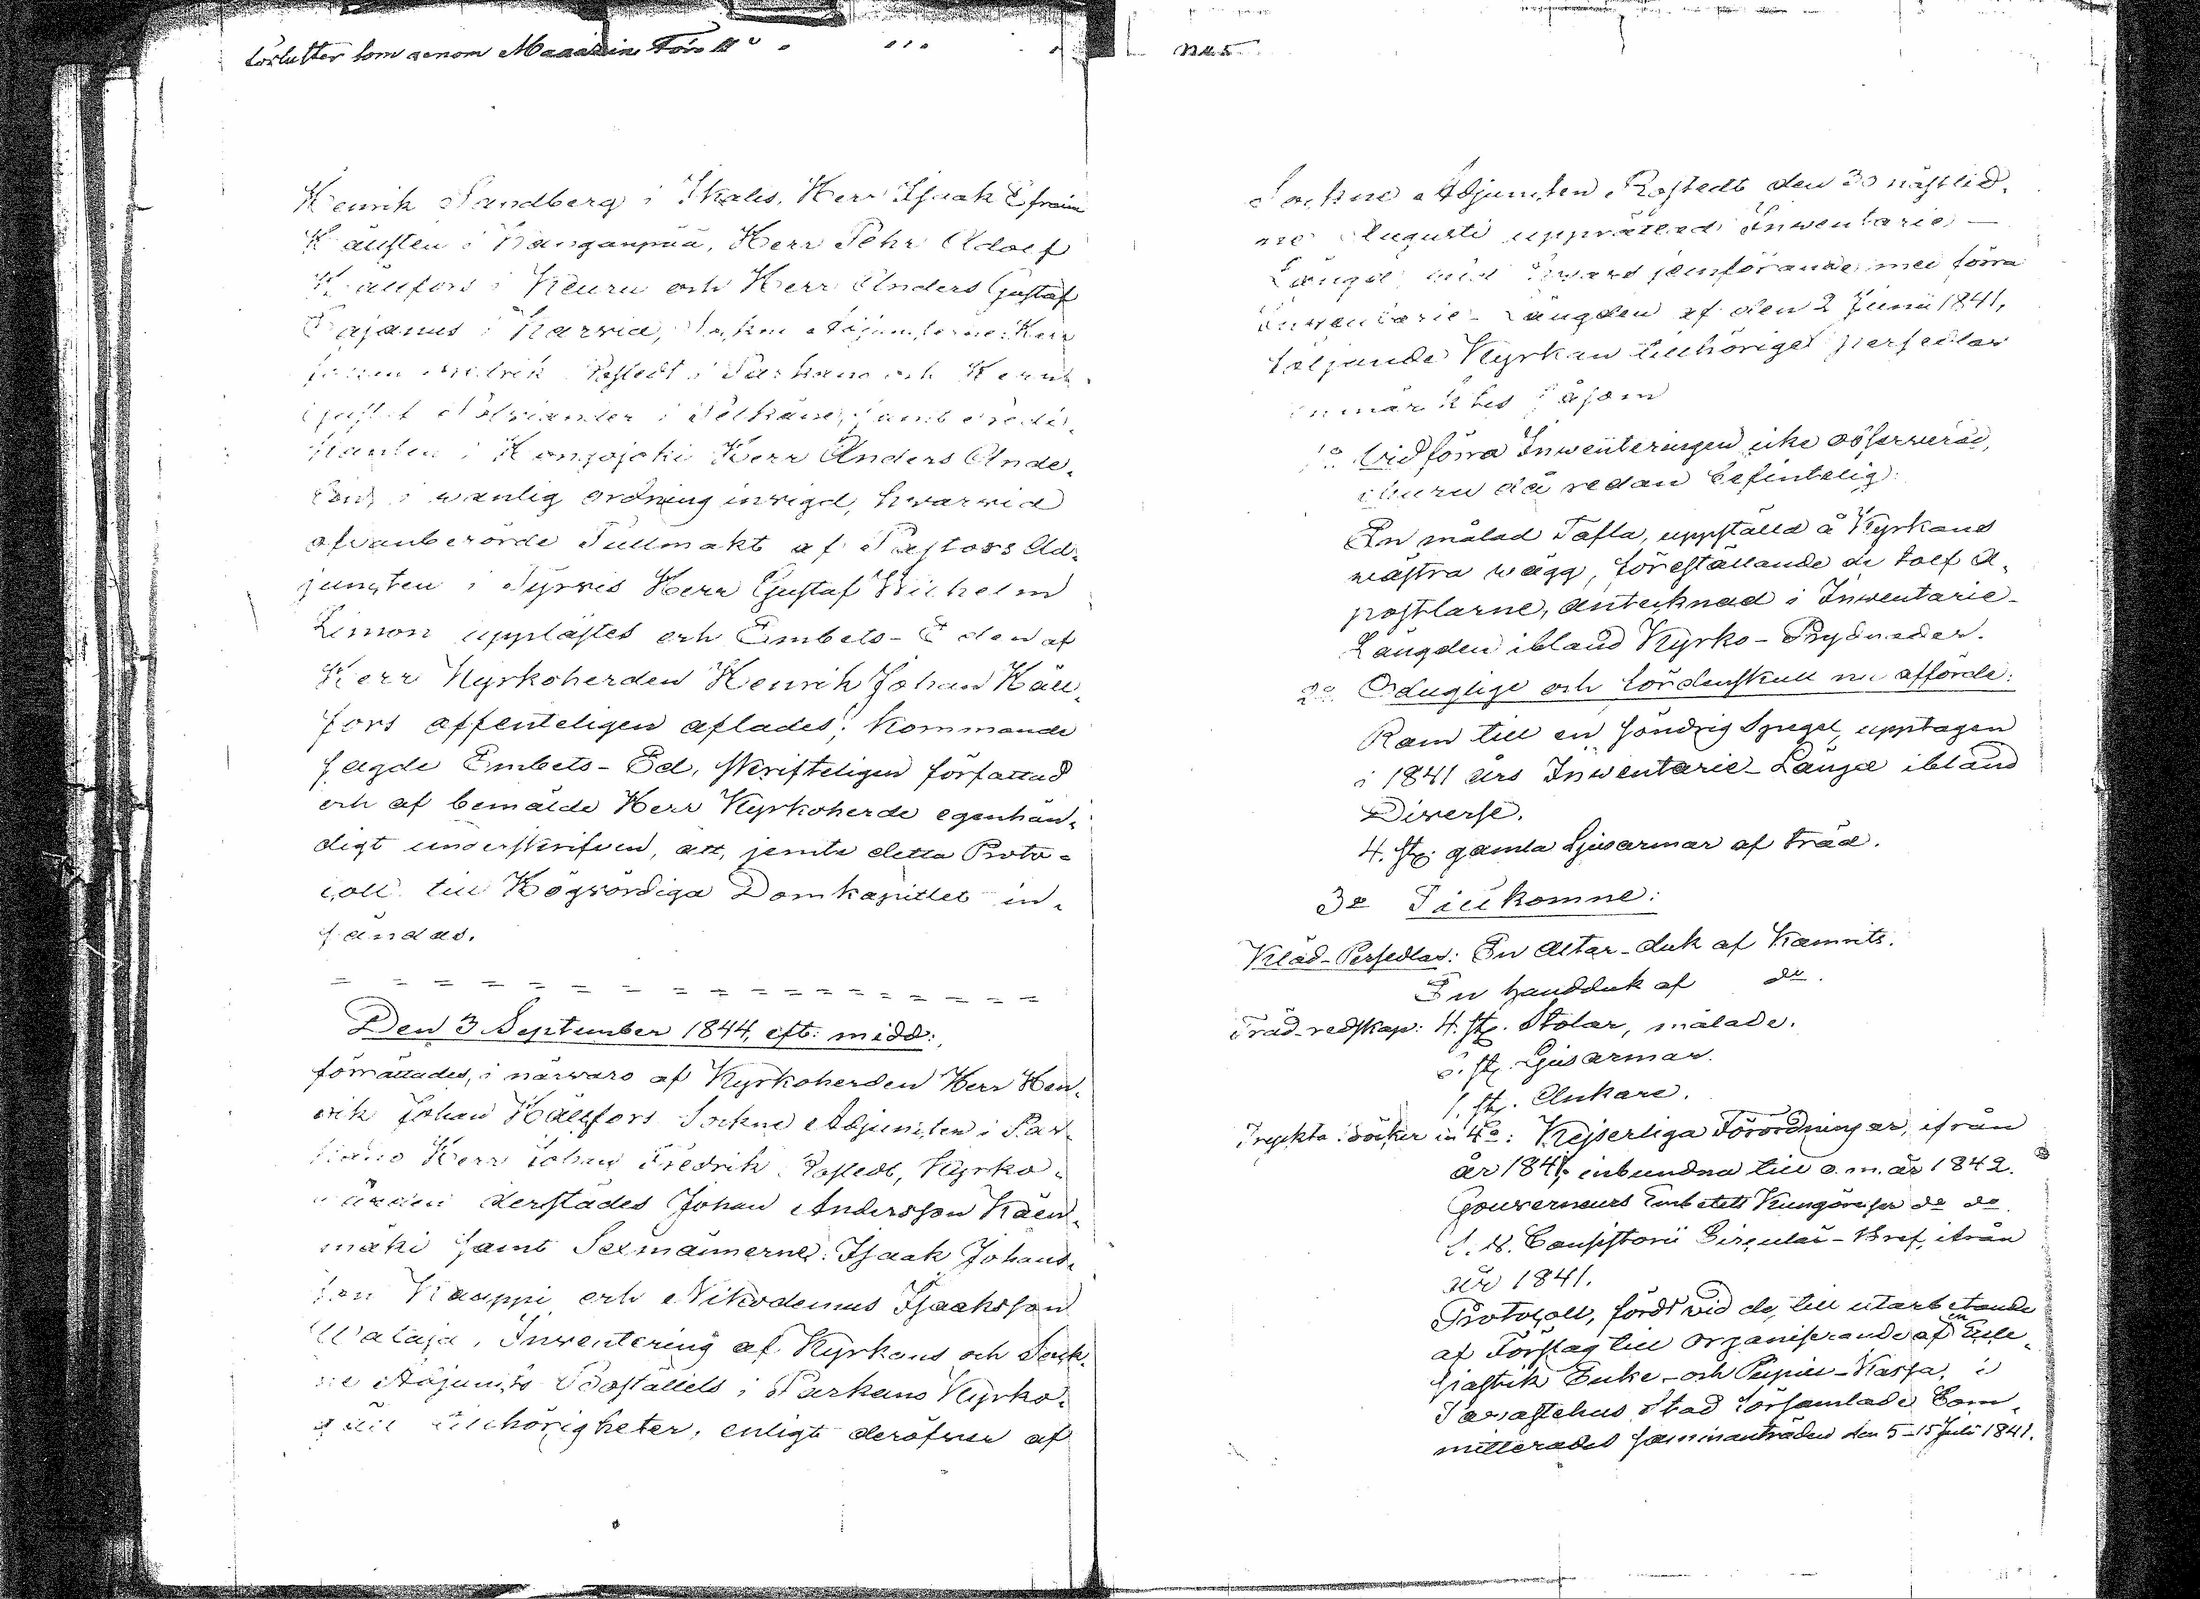 Henrik Sandberg i Ikalis, Herr Isaak Efraim
i Kanganpää, Herr Pehr Adolf
Källfors i Keuru och Herr Anders Gustaf
Cajanus i Karvia, Sockne Adjuncterne: Herr
Johan Fredrik Rostedt i Parkano och Henrik
Gustaf i Pelkäne, samt Predi-
kanten i Hongojoki Herr Anders Ande-
lin, i wanlig ordning invigd, hwarvid
ofvanberörde Fullmakt af Pastors Ad-
juncten i Tyrvis Herr Gustaf Wilhelm
Limon upplästes och Embets-Eden af
Herr Kyrkoherden Henrik Johan Häll-
fors offenteligen aflades; kommande
sagde Embets-Ed, skrifteligen författad
och af bemälde Herr Kyrkoherde egenhän-
digt underskrifven, att, jemte detta Proto-
coll till Högvördiga Domkapitlet in-
sändas.
Den 3 September 1844, eft: midd:,
förrättades, i närvaro af Kyrkoherden Herr Hen-
rik Johan Hällfors Sockne Adjuncten i Par-
kano Herr Johan Fredrik Rostedt, Kyrko-
värden derstädes Johan Andersson Käen-
mäki samt Sexmännerne: Isaak Johans-
son Kaappi och Nikodemus Isaaksson
Wataja, Inventering af Kyrkans och Sock-
ne Adjuncts Boställets i Parkano Kyrko-
gäll tillhörigheter, enligt deröfver af
Sockne Adjuncten Rostedt den 30 nästlid-
ne Augusti upprättad Inventarie-
Längd, vid hwars jemförande med förra
Inventarie-Längden af den 2 Junii 1841,
följande Kyrkan tillhöriga persedlar
anmärktes såsom
1o Vid förra Inventeringen icke observerad,
ehuru då redan befintelig:
En målad Tafla, uppställd å Kyrkans
wästra wägg, föreställande de tolf A-
postlarne, antecknad i Inventarie-
Längden ibland Kyrko-Prydnader.
2o Oduglige och fördenskull nu afförde:
Ram till en söndrig Spegel, upptagen
i 1841 års Inventarie-Längd ibland
Diverse.
4. st. gamla Ljusarmar af träd.
3o Tillkomne:
Kläd-Persedlar: En Altar-duk af Kamrits.
En handduk af do.
Träd-redskap: 4. st. Stolar, målade.
st. Ljusarmar.
1. st. Ankare.
Tryckta Böcker in 4o: Kejserliga Förordningar, ifrån
år 1841, inbundna till o. m. år 1842.
Gouverneurs Embetets Kungörelser do do
Consistorii Circulär-Bref, ifrån
år 1841.
Protocoll, fördt vid de, till utarbetande
af Förslag till organiserande af en Eccle-
siastik Enke- och Pupill-Kassa, i
Tavastehus stad församlade Com-
mitterades sammanträden den 5-15 Juli 1841.